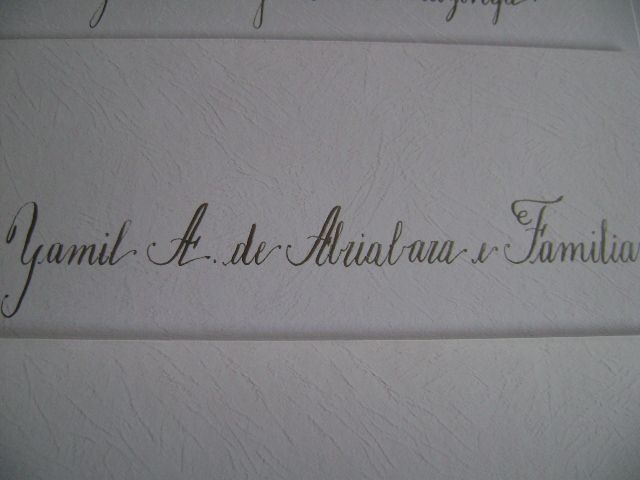 Yamil A. de Abriabara e Familia